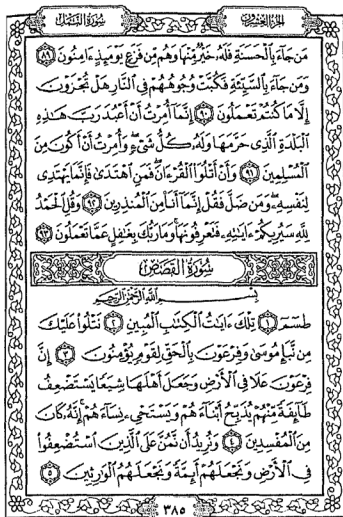 الجزء العشرون
سورة النمل
مَن جَآءَ بِٱلْحَسَنَةِ فَلَهُۥ خَيْرٌ مِّنْهَا وَهُم مِّن فَزَعٍ يَوْمَئِذٍ ءَامِنُونَ ٨٩
وَمَن جَآءَ بِٱلسَّيِّئَةِ فَكُبَّتْ وُجُوهُهُمْ فِى ٱلنَّارِ هَلْ تُجْزَوْنَ
إِلَّا مَا كُنتُمْ تَعْمَلُونَ ٩٠ إِنَّمَآ أُمِرْتُ أَنْ أَعْبُدَ رَبَّ هَٰذِهِ
ٱلْبَلْدَةِ ٱلَّذِى حَرَّمَهَا وَلَهُۥ كُلُّ شَىْءٍ وَأُمِرْتُ أَنْ أَكُونَ مِنَ
ٱلْمُسْلِمِينَ ٩١ وَأَنْ أَتْلُوَا۟ ٱلْقُرْءَانَ فَمَنِ ٱهْتَدَىٰ فَإِنَّمَا يَهْتَدِى
لِنَفْسِهِۦ وَمَن ضَلَّ فَقُلْ إِنَّمَآ أَنَا۠ مِنَ ٱلْمُنذِرِينَ ٩٢ وَقُلِ ٱلْحَمْدُ
لِلَّهِ سَيُرِيكُمْ ءَايَٰتِهِۦ فَتَعْرِفُونَهَا وَمَا رَبُّكَ بِغَٰفِلٍ عَمَّا تَعْمَلُونَ ٩٣
سُورَةُ القَصَصِ
بِسْمِ ٱللَّهِ ٱلرَّحْمَٰنِ ٱلرَّحِيمِ
طسٓمٓ ١ تِلْكَ ءَايَٰتُ ٱلْكِتَٰبِ ٱلْمُبِينِ ٢ نَتْلُوا۟ عَلَيْكَ
مِن نَّبَإِ مُوسَىٰ وَفِرْعَوْنَ بِٱلْحَقِّ لِقَوْمٍ يُؤْمِنُونَ ٣ إِنَّ
فِرْعَوْنَ عَلَا فِى ٱلْأَرْضِ وَجَعَلَ أَهْلَهَا شِيَعًا يَسْتَضْعِفُ
طَآئِفَةً مِّنْهُمْ يُذَبِّحُ أَبْنَآءَهُمْ وَيَسْتَحْىِۦ نِسَآءَهُمْ إِنَّهُۥ كَانَ
مِنَ ٱلْمُفْسِدِينَ ٤ وَنُرِيدُ أَن نَّمُنَّ عَلَى ٱلَّذِينَ ٱسْتُضْعِفُوا۟
فِى ٱلْأَرْضِ وَنَجْعَلَهُمْ أَئِمَّةً وَنَجْعَلَهُمُ ٱلْوَٰرِثِينَ ٥
٣٨٥